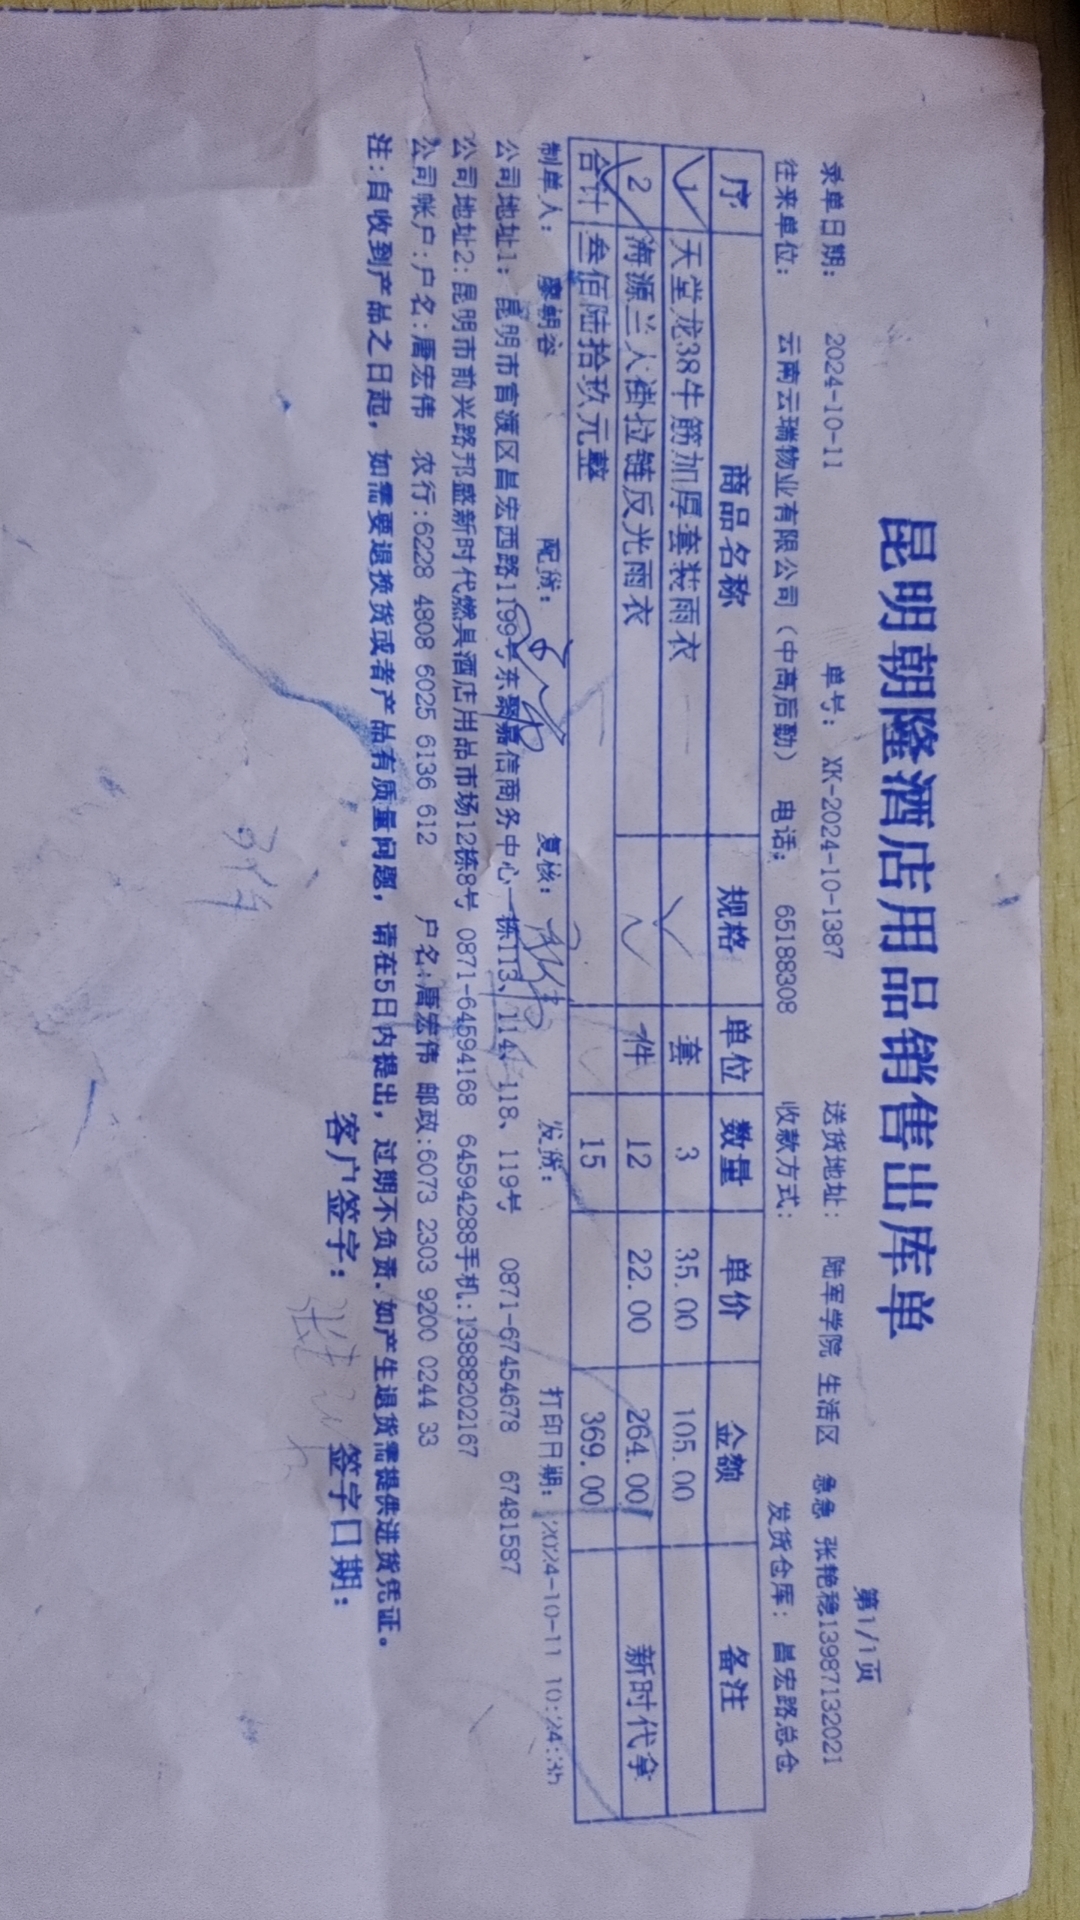 昆明朝隆酒店用品销售出库单
第1/1页
录单日期： 2024-10-11 单号： XK-2024-10-1387 送货地址： 陆军学院 生活区 急急 张艳稳13987132021
往来单位： 云南云瑞物业有限公司（中高后勤） 电话： 65188308 收款方式： 发货仓库：昌宏路总仓
序 商品名称 规格 单位 数量 单价 金额 备注
1 天堂龙38牛筋加厚套装雨衣 套 3 35.00 105.00
2 海源兰大褂拉链反光雨衣 件 12 22.00 264.00 新时代拿
合计 叁佰陆拾玖元整 15 369.00
制单人： 廖朝谷 配货： 复核： 发货： 打印日期： 2024-10-11 10:24:35
公司地址1： 昆明市官渡区昌宏西路1199号东聚嘉信商务中心一栋113、114、118、119号 0871-67454678 67481587
公司地址2:昆明市前兴路邦盛新时代燃具酒店用品市场12栋8号 0871-64594168 64594288手机:13888202167
公司帐户:户名:唐宏伟 农行:6228 4808 6025 6136 612 户名:唐宏伟 邮政:6073 2303 9200 0244 33
注:自收到产品之日起，如需要退换货或者产品有质量问题，请在5日内提出，过期不负责.如产生退货需提供进货凭证。
客户签字： 签字日期：
3件